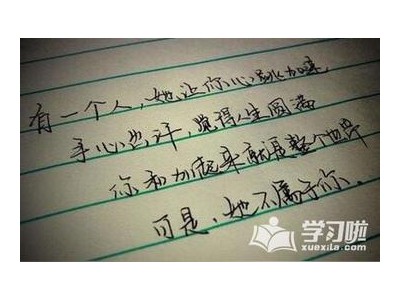 有一个人,她让你心跳加速
手心出汗,觉得人生圆满
你和加起来就是整个世界
可是,她不属于你.
学习啦
xuexila.com